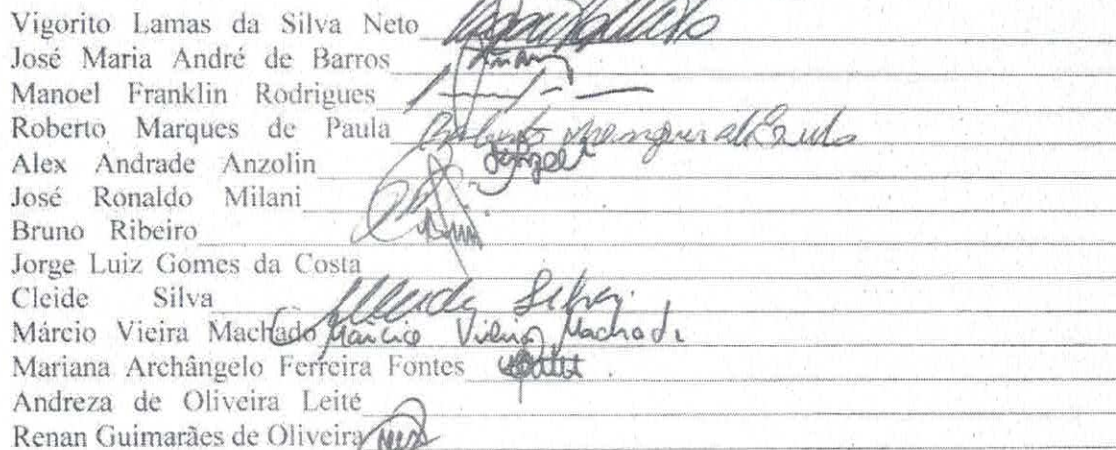 Vigorito Lamas da Silva Neto
José Maria André de Barros
Manoel Franklin Rodrigues
Roberto Marques de Paula
Alex Andrade Anzolin
José Ronaldo Milani
Bruno Ribeiro
Jorge Luiz Gomes da Costa
Cleide Silva Cleide Silva
Márcio Vieira Machado Marcio Vieira Machado
Mariana Archângelo Ferreira Fontes
Andreza de Oliveira Leite
Renan Guimarães de Oliveira